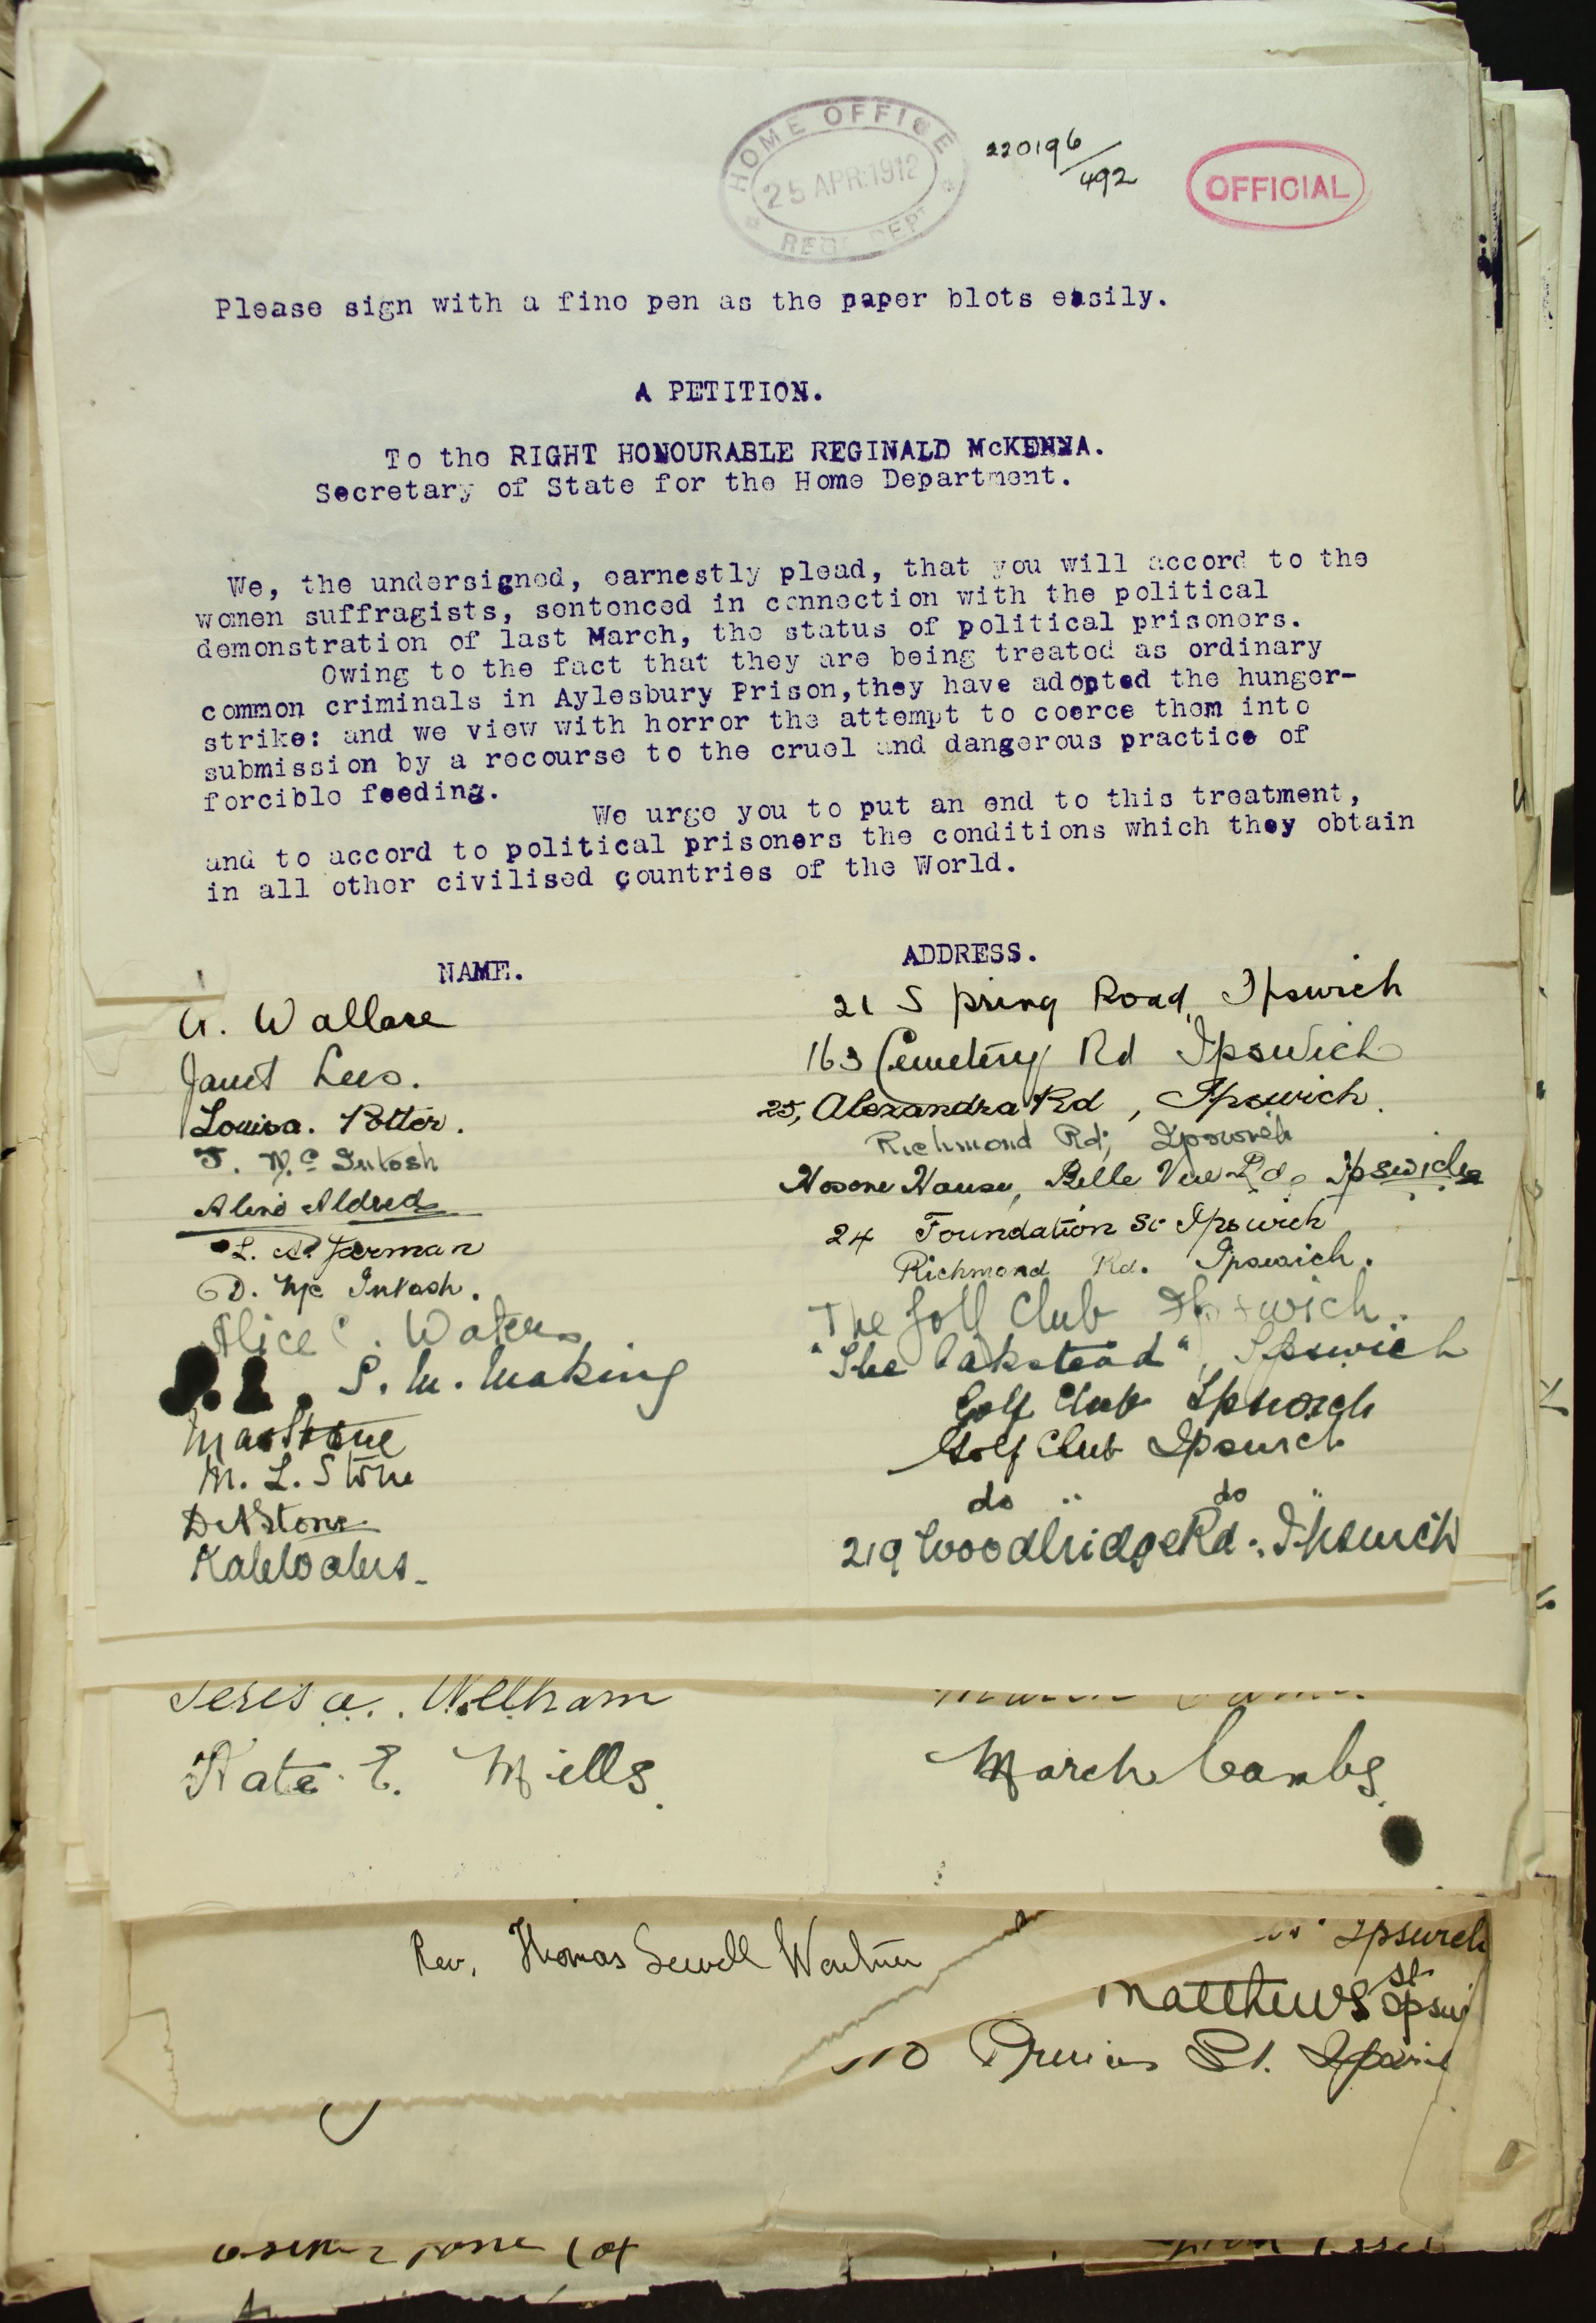 HOME OFFICE
25 APR. 1912
DEPT
220196/492
OFFICIAL
Please sign with a fine pen as the paper blots easily.
A PETITION.
To the RIGHT HONOURABLE REGINALD McKENNA.
Secretary of State for the Home Department.
We, the undersigned, earnestly plead, that you will accord to the
women suffragists, sentenced in connection with the political
demonstration of last March, the status of political prisoners.
Owing to the fact that they are being treated as ordinary
common criminals in Aylesbury Prison,they have adopted the hunger-
strike: and we view with horror the attempt to coerce them into
submission by a recourse to the cruel and dangerous practice of
forcible feeding.
We urge you to put an end to this treatment,
and to accord to political prisoners the conditions which they obtain
in all other civilised countries of the World.
NAME. ADDRESS.
Wallace 21 Spring Road, Ipswich
Janet Lees. 163 Cemetery Rd Ipswich
Louisa. Potter. 25, Alexandra Rd, Ipswich.
Mc Intosh Richmond Rd; Ipswich
Aldred House, Belle Vue Rd. Ipswich
L. A. Jarman 24 Foundation St Ipswich
D. Mc Intosh. Richmond Rd. Ipswich.
Alice C. Waters The Golf Club Ipswich.
S. M. Making "The Oakstead", Ipswich
Golf Club Ipswich
M. L. Stone Golf Club Ipswich
Stone do " do "
219 Woodbridge Rd. Ipswich
Teresa. Wellham
Kate E. Mills. March Cambs.
Rev. Thomas Sewell
Ipswich
Matthews St
St. Ipswich